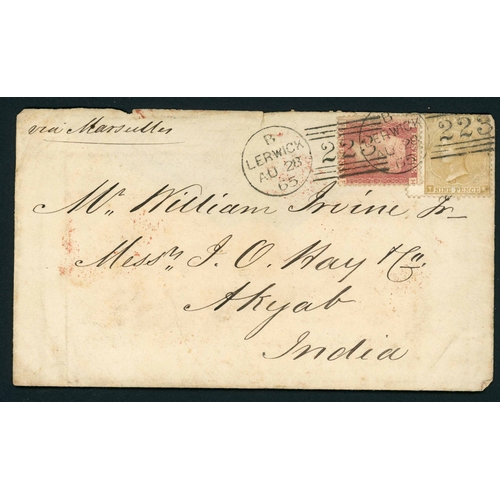 via Marseilles
B
LERWICK
AU 28
65
223
B
LERWICK
AU 28
223
NINE PENCE
Mr. William Irvine, Jr
Messrs J. O. Hay & Co.
Akyab
India